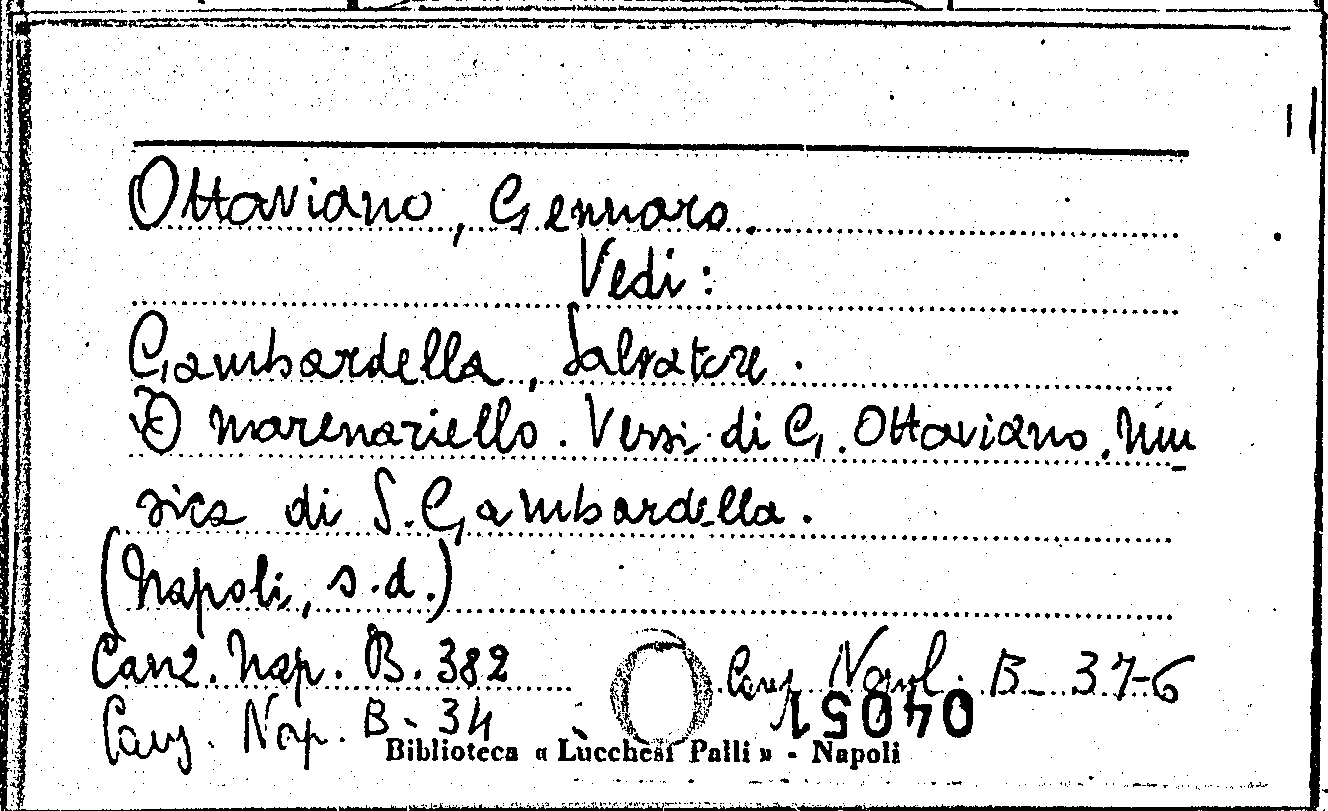 Ottaviano, Gennaro.
Vedi:
Gambardella, Salvatore.
'O marenariello. Versi di G. Ottaviano. Mu
sica di S. Gambardella.
(Napoli, s.d.)
Canz. Nap. B. 382
Canz. Napol. B. 37-6
Canz. Nap. B. 34
04051
Biblioteca « Lucchesi Palli » - Napoli